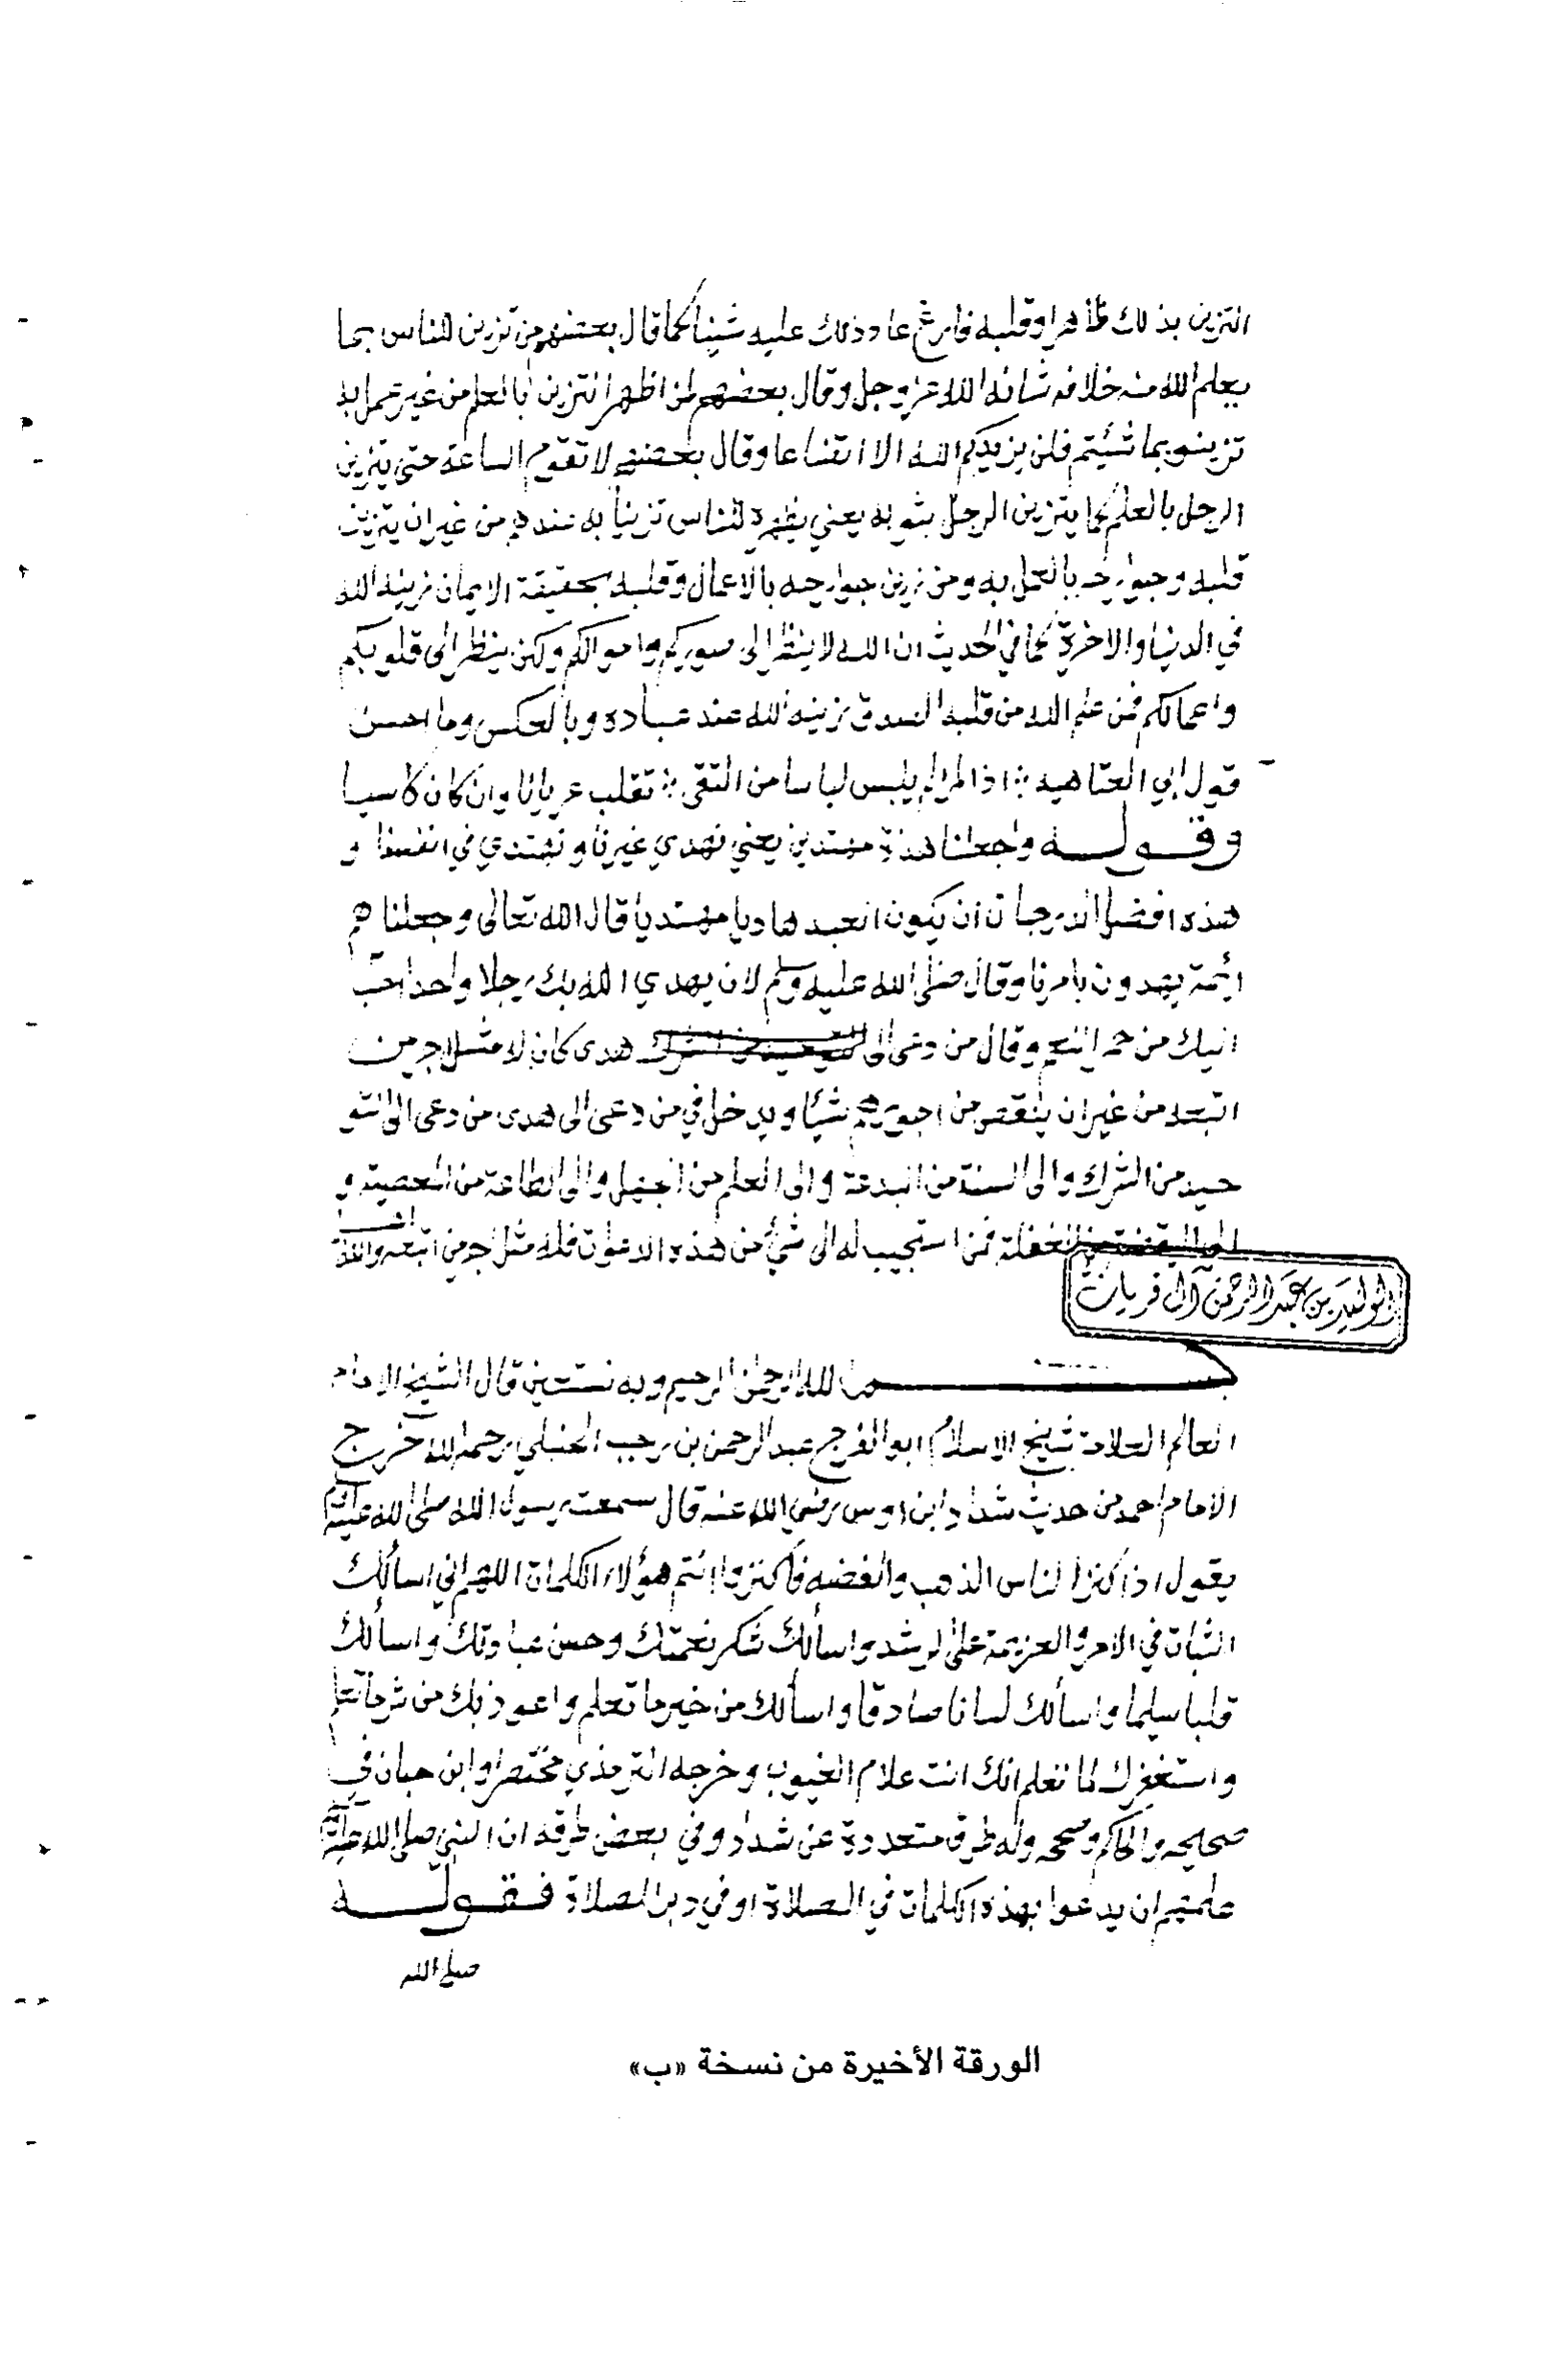 التزين بذلك ظاهرا وقلبه فارغ عاد ذلك عليه شينا كما قال بعضهم من تزين للناس بما
يعلم الله منه خلافه شانه الله عز وجل وقال بعضهم لمن اظهر التزين بالعلم من غير عمل به
تزينو بما شئيتم فلن يزيدكم الله الا اتضاعا وقال بعضهم لا تقوم الساعة حتى يتزين
الرجل بالعلم كما يتزين الرجل بثوبه يعني يظهره للناس تزينا به عندهم من غير ان يتزين
قلبه وجوارحه بالعمل به ومن زين جوارحه بالاعمال وقلبه بحقيقة الايمان زينه الله
في الدنيا والاخرة كما في الحديث ان الله لا ينظر الى صوركم واموالكم ولكن ينظر الى قلوبكم
واعمالكم فمن علم الله من قلبه الصدق زينه الله عند عباده وبالعكس وما احسن
قول ابي العتاهيه : اذا المرء لم يلبس لباسا من التقى : تقلب عريانا وان كان كاسيا
وقوله واجعلنا هداة مهتدين يعني نهدي غيرنا ونهتدي في انفسنا و
هذه افضل الدرجات ان يكون العبد هاديا مهتديا قال الله تعالى وجعلناهم
ائمة يهدون بامرنا وقال صلى الله عليه وسلم لان يهدي الله بك رجلا واحدا احب
اليك من حمر النعم وقال من دعى الى التوحيد من الشرك هدى كان له مثل اجر من
اتبعه من غير ان ينقص من اجورهم شيئا ويدخل في من دعى الى هدى من دعى الى التو
حيد من الشرك والى السنة من البدعة والى العلم من الجهل والى الطاعة من المعصية و
الى اليقضة من الغفلة فمن استجيب له الى شيء من هذه الدعوات فله مثل اجر من اتبعه والله
الوليد بن عبد الرحمن آل فريان
بسم الله الرحمن الرحيم وبه نستعين قال الشيخ الامام
العالم العلامة شيخ الاسلام ابو الفرج عبد الرحمن بن رجب الحنبلي رحمه الله خرج
الامام احمد من حديث شداد ابن اوس رضي الله عنه قال سمعت رسول الله صلى الله عليه
يقول اذا كنز الناس الذهب والفضه فاكنزوا انتم هؤلاء الكلمات اللهم اني اسالك
الثبات في الامر والعزيمة على الرشد واسألك شكر نعمتك وحسن عبادتك واسالك
قلبا سليما واسألك لسانا صادقا واسألك من خير ما تعلم واعوذ بك من شر ما تعلم
واستغفرك لما تعلم انك انت علام الغيوب وخرجه الترمذي مختصرا وابن حبان في
صحيحه والحاكم وصححه وله طرق متعددة عن شداد وفي بعض طرقه ان النبي صلى الله عليه
علمهم ان يدعوا بهذه الكلمات في الصلاة او في دبر الصلاة فقوله
صلى الله
الورقة الأخيرة من نسخة «ب»